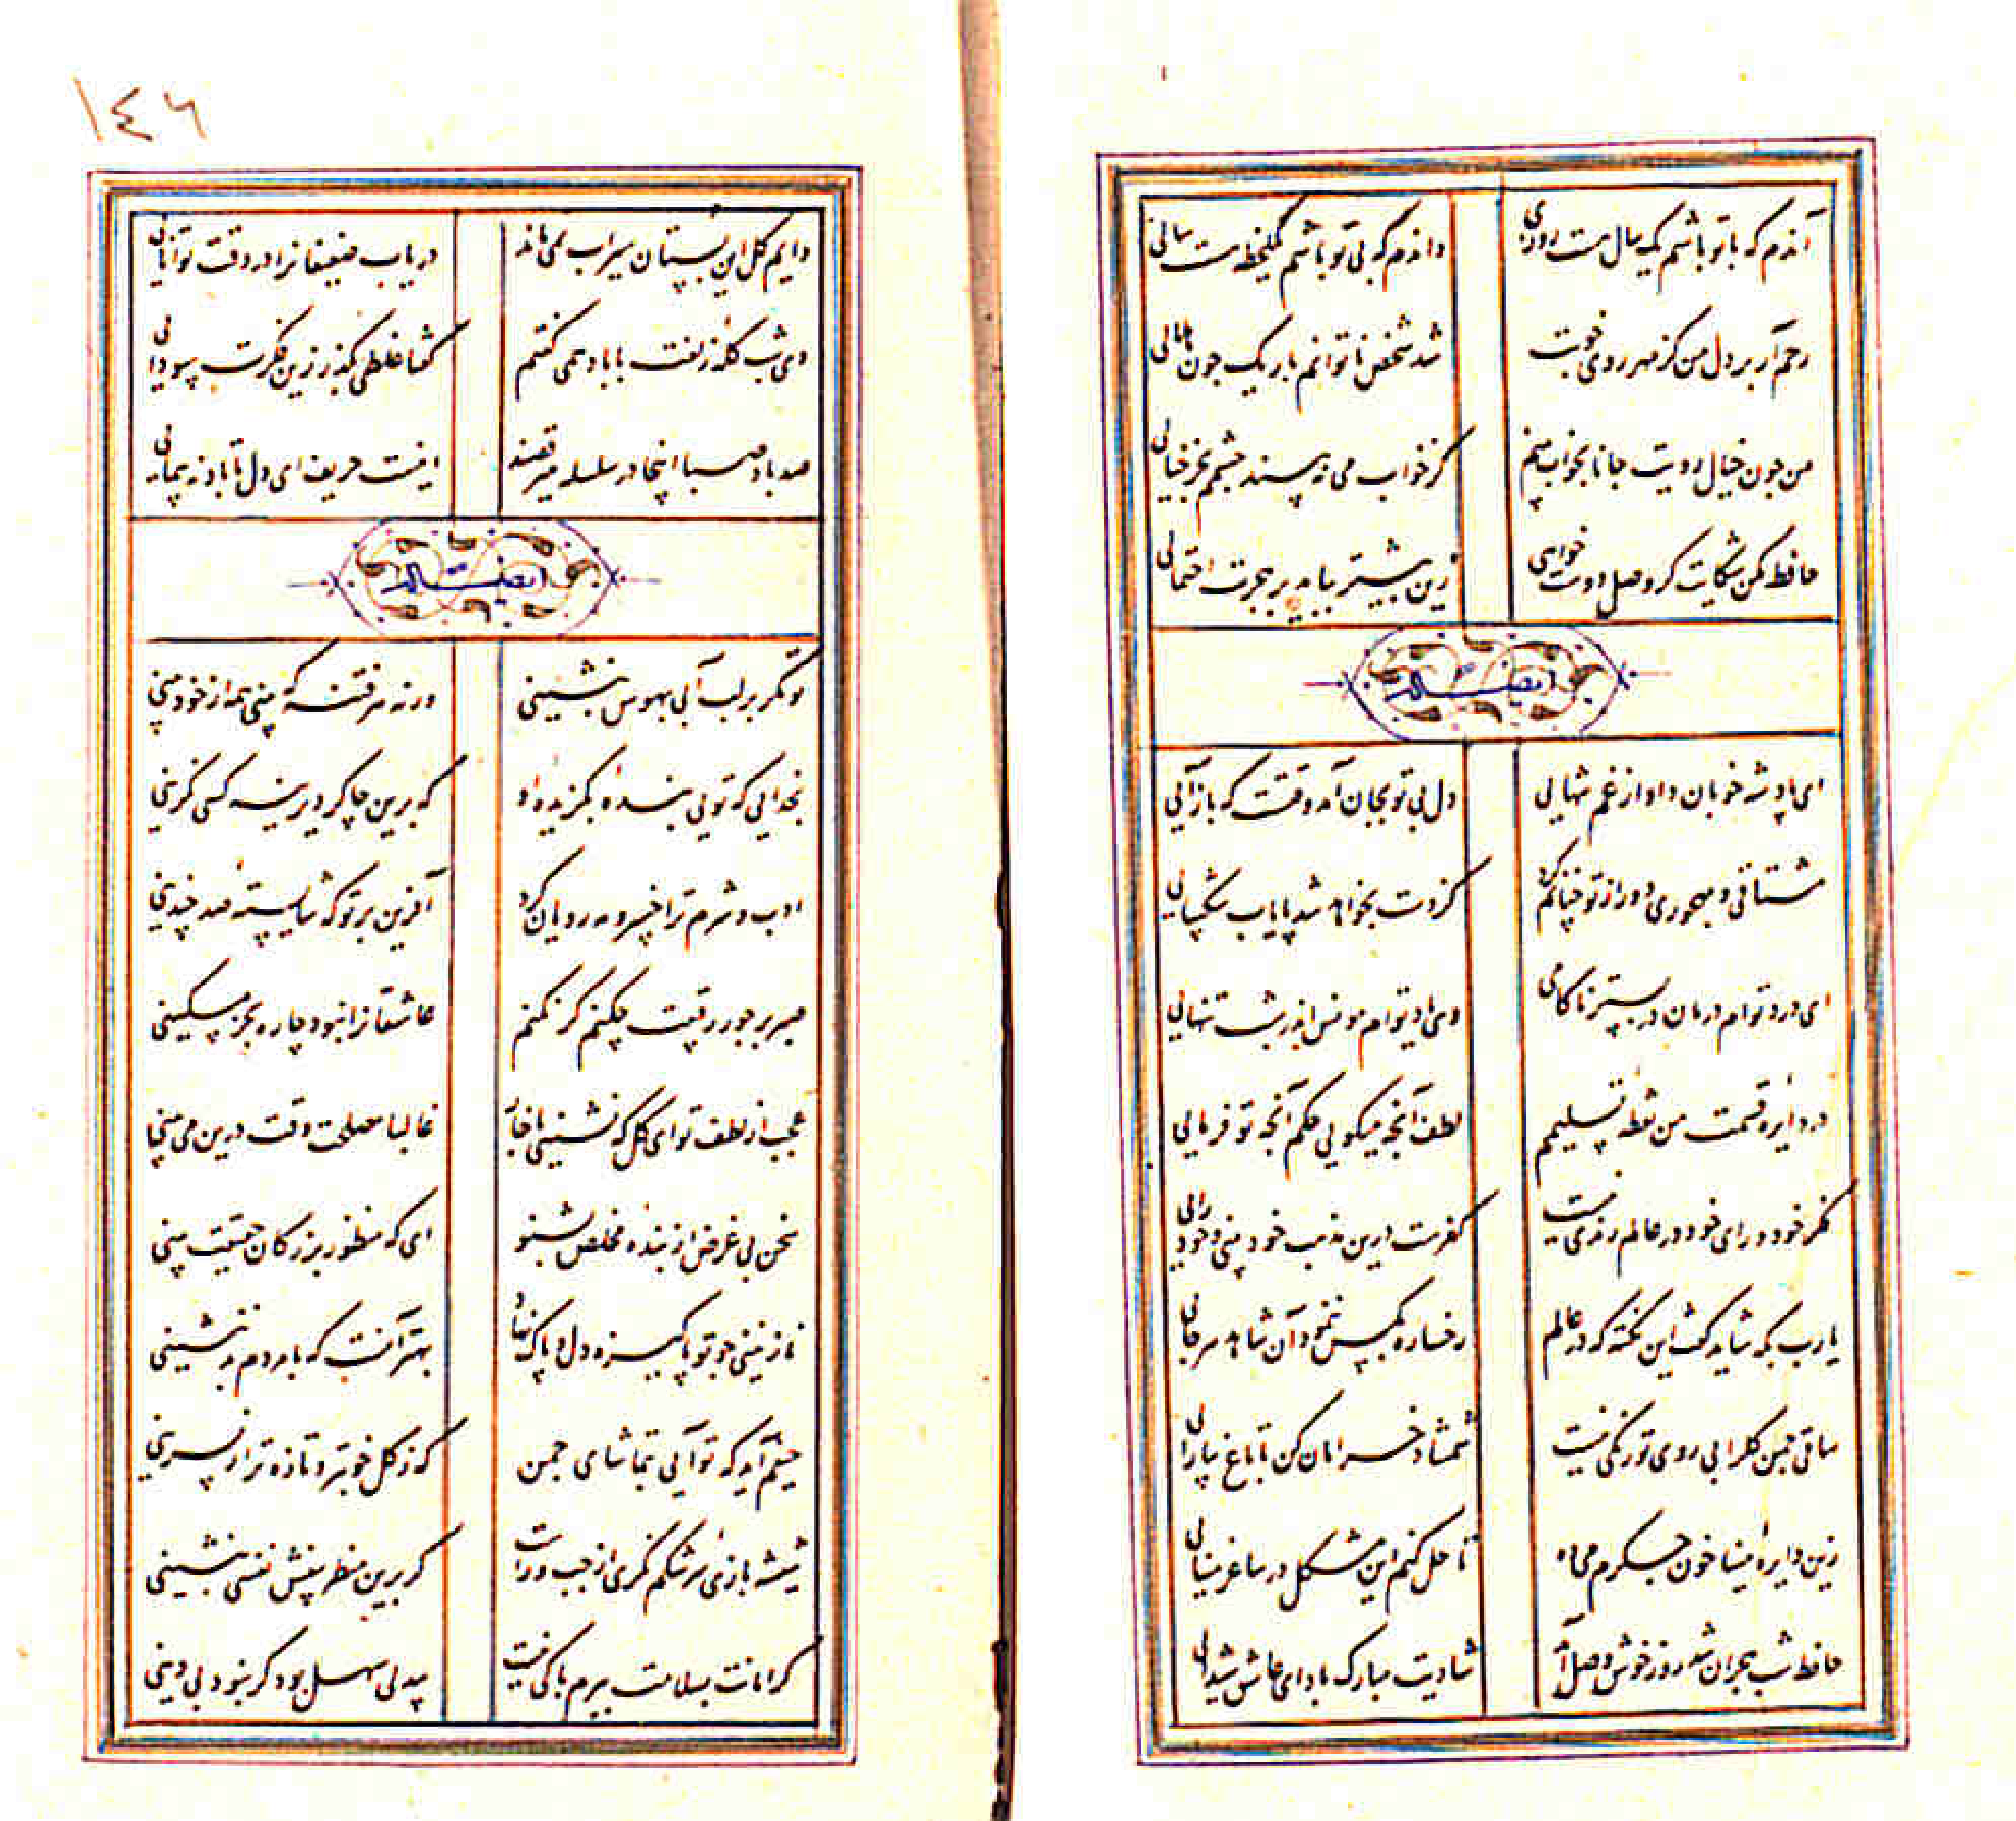 آندم که با تو باشم یک سال هست روزی
واندم که بی تو باشم یکلحظه هست سالی
رحم آر بر دل من کز مهر روی خوبت
شد شخص ناتوانم باریک چون هلالی
من چون خیال رویت جانا بخواب بینم
کز خواب می نه بیند چشمم بجز خیالی
حافظ مکن شکایت گر وصل دوست خواهی
زین بیشتر بباید بر هجرت احتمالی
ایضا له
ای پادشه خوبان داد از غم تنهایی
دل بی تو بجان آمد وقتست که بازآیی
مشتاقی و مهجوری دور از تو چنانم کرد
کز دست بخواهد شد پایاب شکیبایی
ای درد توام درمان در بستر ناکامی
وی یاد توام مونس در شب تنهایی
در دایره قسمت من نقطه تسلیمم
لطف آنچه میگویی حکم آنچه تو فرمایی
فکر خود و رای خود در عالم رندی نیست
کفرست درین مذهب خود بینی و خود رایی
یا رب بکه شاید گفت این نکته که در عالم
رخساره بکس ننمود آن شاهد هرجایی
ساقی چمن گل را بی روی تو رنگی نیست
شمشاد خرامان کن تا باغ بیارایی
زین دایره مینا خون جگرم می ده
تا حل کنم این مشکل در ساغر مینایی
حافظ شب هجران شد روز خوش وصل آمد
شادیت مبارک باد ای عاشق شیدایی
۱٤۶
دایم گل این بستان سیراب نمی ماند
دریاب ضعیفانرا در وقت توانایی
دی شب گله زلفت با باد همی گفتم
گفتا غلطی بگذر زین فکرت سودایی
صد باد صبا اینجا در سلسله میرقصند
اینست حریف ای دل تا باد نه پیمایی
ایضا له
تو مگر بر لب آبی بهوس بنشینی
ورنه هر فتنه که بینی همه از خود بینی
بخدایی که تویی بنده بگزیده او
که برین چاکر دیرینه کسی نگزینی
ادب و شرم ترا خسرو مه رویان کرد
آفرین بر تو که شایسته صد چندینی
صبر بر جور رقیبت چکنم گر نکنم
عاشقانرا نبود چاره بجز مسکینی
عجب از لطف تو ای گل که نشینی با خار
غالبا مصلحت وقت درین می بینی
سخن بی غرض از بنده مخلص بشنو
ای که منظور بزرگان حقیقت بینی
نازنینی چو تو پاکیزه دل و پاک نهاد
بهتر آنست که با مردم بد ننشینی
حیفم آید که تو آیی بتماشای چمن
که ز گل خوبتر و تازه تر از نسرینی
شیشه بازی سرشکم نگری از چپ و راست
گر برین منظر بینش نفسی بنشینی
گر امانت بسلامت ببرم باکی نیست
بیدلی سهل بود گر نبود بی دینی